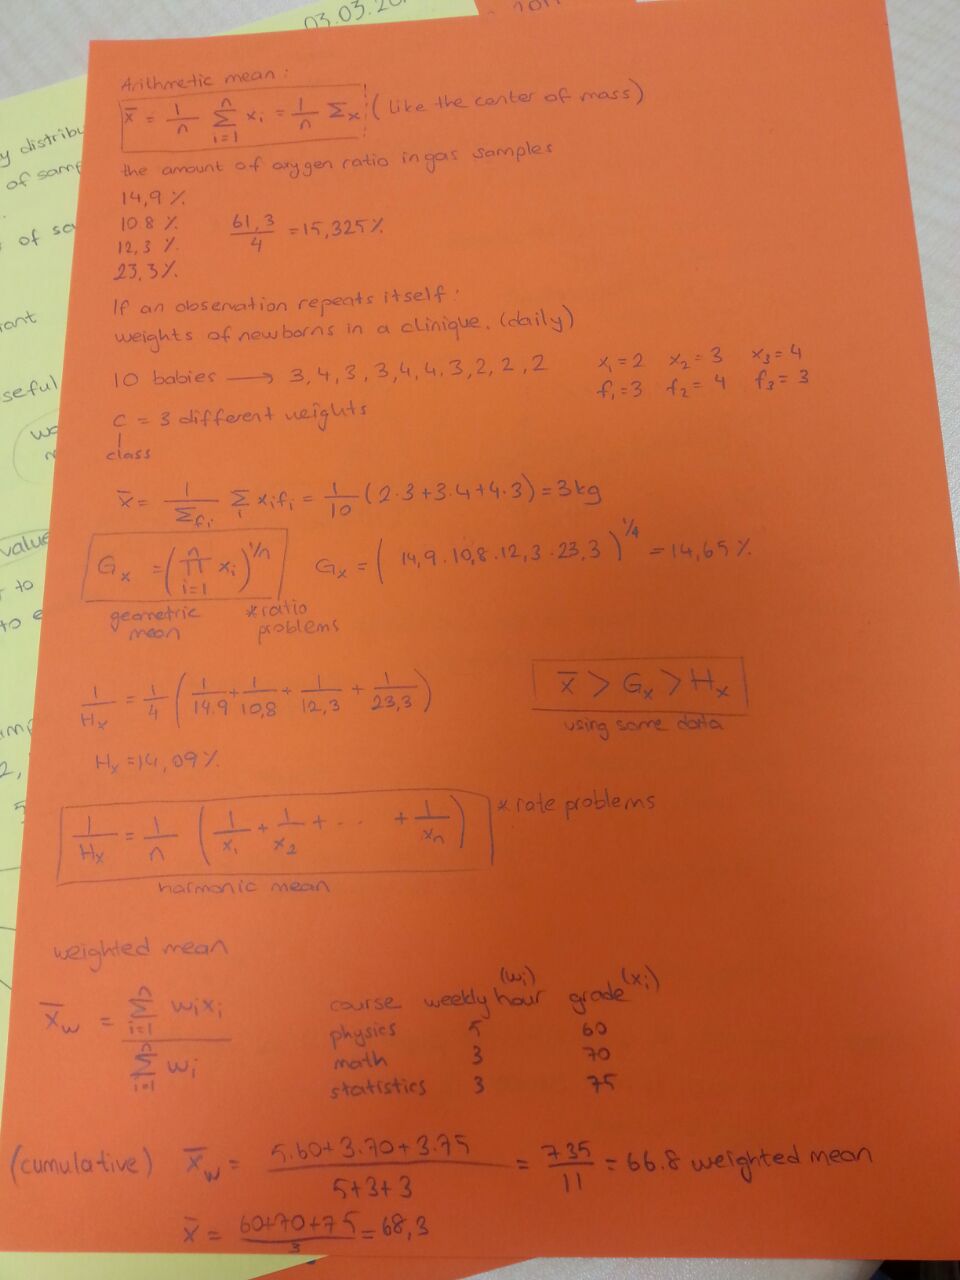 03.03.20
Arithmetic mean :
x̄ = 1/n Σ(i=1→n) xᵢ = 1/n Σx (like the center of mass)
the amount of oxygen ratio in gas samples
14,9 %
10.8 %
12,3 %
23,3 %
61,3/4 = 15,325 %
If an observation repeats itself :
weights of newborns in a clinique. (daily)
10 babies → 3, 4, 3, 3, 4, 4, 3, 2, 2, 2
x₁ = 2 x₂ = 3 x₃ = 4
f₁ = 3 f₂ = 4 f₃ = 3
c = 3 different weights
class
x̄ = 1/Σfᵢ Σᵢ xᵢfᵢ = 1/10 (2·3+3·4+4·3) = 3 kg
Gₓ = (Π(i=1→n) xᵢ)^1/n
geometric mean
*ratio problems
Gₓ = (14,9 · 10,8 · 12,3 · 23,3)^1/4 = 14,65 %
1/Hₓ = 1/4 (1/14.9 + 1/10,8 + 1/12,3 + 1/23,3)
Hₓ = 14,09 %
x̄ > Gₓ > Hₓ
using same data
1/Hₓ = 1/n (1/x₁ + 1/x₂ + ... + 1/xₙ) * rate problems
harmonic mean
weighted mean
x̄w = Σ(i=1→n) wᵢxᵢ / Σ(i=1→n) wᵢ
course weekly hour (wᵢ) grade (xᵢ)
physics 5 60
math 3 70
statistics 3 75
(cumulative) x̄w = 5.60+3.70+3.75 / 5+3+3 = 735/11 = 66.8 weighted mean
x̄ = 60+70+75/3 = 68,3
y distribu
of samp
of sa
rant
seful
value
to
to e